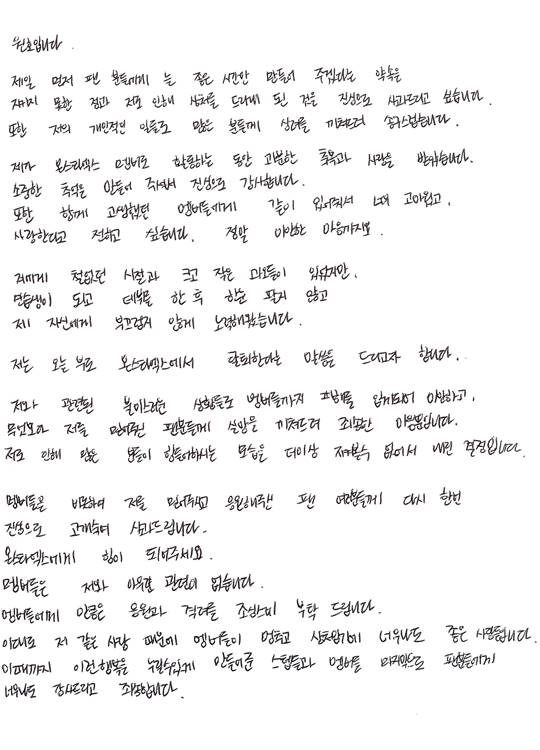 원호입니다.
제일 먼저 팬 분들에게 늘 좋은 시간만 만들어 주겠다는 약속을
지키지 못한 점과 저로 인해 상처를 드리게 된 것을 진심으로 사과드리고 싶습니다.
또한 저의 개인적인 일들로 많은 분들께 심려를 끼쳐드려 송구스럽습니다.
제가 몬스타엑스 멤버로 활동하는 동안 과분한 축복과 사랑을 받았습니다.
소중한 추억을 만들어 주셔서 진심으로 감사합니다.
또한 함께 고생했던 멤버들에게 같이 있어줘서 너무 고마웠고,
사랑한다고 전하고 싶습니다. 정말 미안한 마음까지요.
저에게 철없던 시절과 크고 작은 과오들이 있었지만,
연습생이 되고 데뷔를 한 후 한순 팔지 않고
제 자신에게 부끄럽지 않게 노력해왔습니다.
저는 오늘 부로 몬스타엑스에서 탈퇴한다는 말씀을 드리고자 합니다.
저와 관련된 불미스러운 상황들로 멤버들까지 피해를 입게되어 미안하고,
무엇보다 저를 믿어주신 팬분들께 실망을 끼쳐드려 죄송한 마음뿐입니다.
저로 인해 많은 분들이 힘들어하시는 모습을 더이상 지켜볼수 없어서 내린 결정입니다.
멤버들을 비롯하여 저를 믿어주시고 응원해주신 팬 여러분들께 다시 한번
진심으로 고개숙여 사과드립니다.
몬스타엑스에게 힘이 되어주세요.
멤버들은 저와 아무런 관련이 없습니다.
멤버들에게 만큼은 응원과 격려를 조심스레 부탁 드립니다.
이대로 저 같은 사람 때문에 멤버들이 멈추고 상처받기에 너무나도 좋은 사람들입니다.
이때까지 이런행복을 누릴수있게 만들어준 스텝들과 멤버들 마지막으로 팬분들에게
너무나도 감사드리고 죄송합니다.